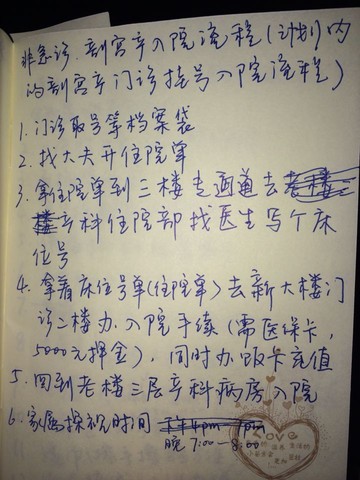 非急诊.剖宫产入院流程(计划内
的剖宫产门诊挂号入院流程)
1.门诊取号等档案袋
2.找大夫开住院单
3.拿住院单到三楼走通道去
产科住院部找医生写个床
位号
4.拿着床位号单(住院单)去新大楼门
诊二楼办入院手续(需医保卡,
5000元押金),同时办饭卡充值
5.回到老楼三层产科病房入院
6.家属探视时间 下午4pm-7pm
晚7:00-8:00
Love